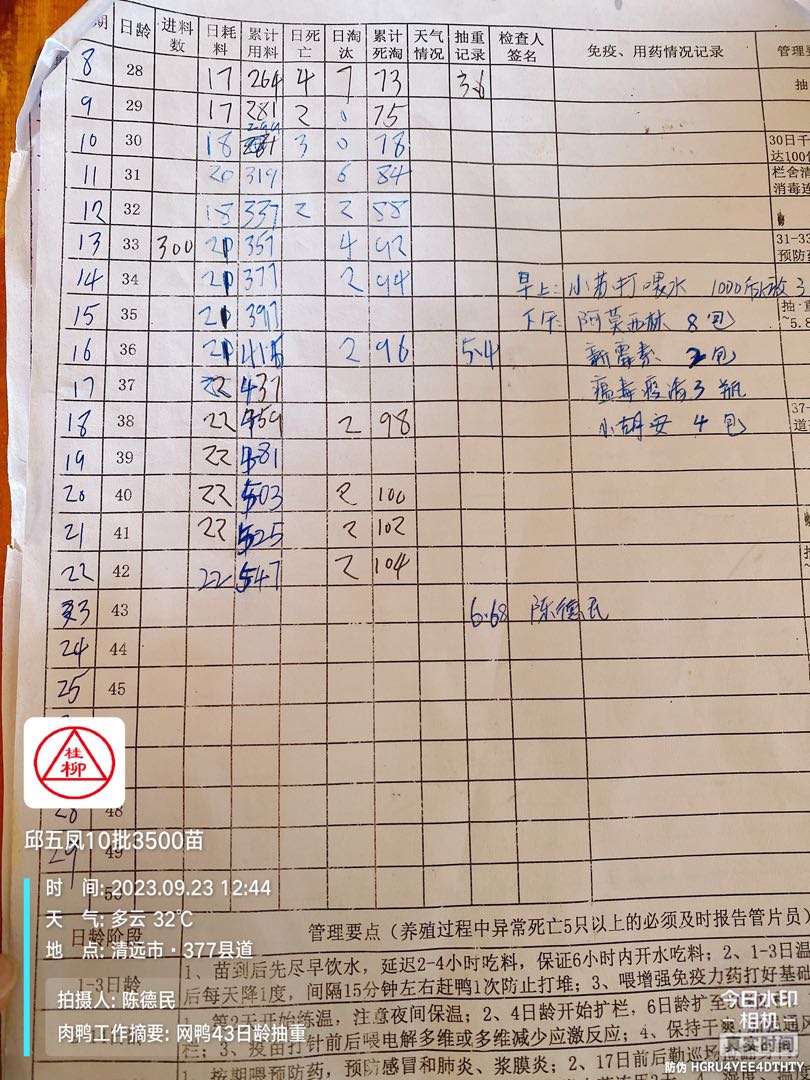 期 日龄 进料数 日耗料 累计用料 日死亡 日淘汰 累计死淘 天气情况 抽重记录 检查人签名 免疫、用药情况记录 管理要
8 28 17 264 4 7 73 3.6 抽
9 29 17 281 2 0 75
10 30 18 299 3 0 78 30日千
达100
11 31 20 319 6 84 栏舍清
消毒连
12 32 18 337 2 2 88
13 33 300 20 357 4 92 31-33
预防药
14 34 20 377 2 94 早上:小苏打喂水 1000
15 35 20 397 下午:阿莫西林 8包 抽重
~5.8
16 36 21 2 96 5.4 新霉素 2包
17 37 22 437 3瓶
18 38 22 459 2 98 4包 37-
道
19 39 22 481
20 40 22 503 2 100
21 41 22 525 2 102
22 42 22 547 2 104
43 6.68 陈德民
24 44
25 45
28 48
29 49
50
桂柳
邱五凤10批3500苗
时 间: 2023.09.23 12:44
天 气: 多云 32℃
地 点: 清远市·377县道
拍摄人: 陈德民
肉鸭工作摘要: 网鸭43日龄抽重
日龄阶段 管理要点(养殖过程中异常死亡5只以上的必须及时报告管片员)
1-3日龄 1、苗到后先尽早饮水,延迟2-4小时吃料,保证6小时内开水吃料;2、1-3日温
后每天降1度,间隔15分钟左右赶鸭1次防止打堆;3、喂增强免疫力药打好基础
1、第2天开始练温,注意夜间保温;2、4日龄开始扩栏,6日龄扩至
栏;3、疫苗打针前后喂电解多维或多维减少应激反应;4、保持干爽 通风
按期喂预防药,预防感冒和肺炎、浆膜炎;2、17日前后勤巡场
今日水印
相机
真实时间
防伪 HGRU4YEE4DTHTY